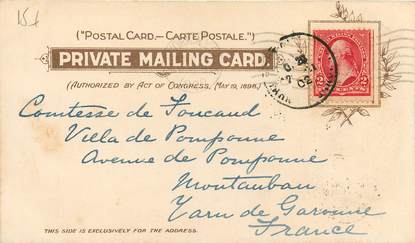 15f
("POSTAL CARD.—CARTE POSTALE.")
PRIVATE MAILING CARD.
(AUTHORIZED BY ACT OF CONGRESS, MAY 19, 1898.)
Comtesse de Foucaud
Villa de Pomponne
Avenue de Pomponne
Montauban
Tarn de Garonne
France
THIS SIDE IS EXCLUSIVELY FOR THE ADDRESS.
2 CENTS 2